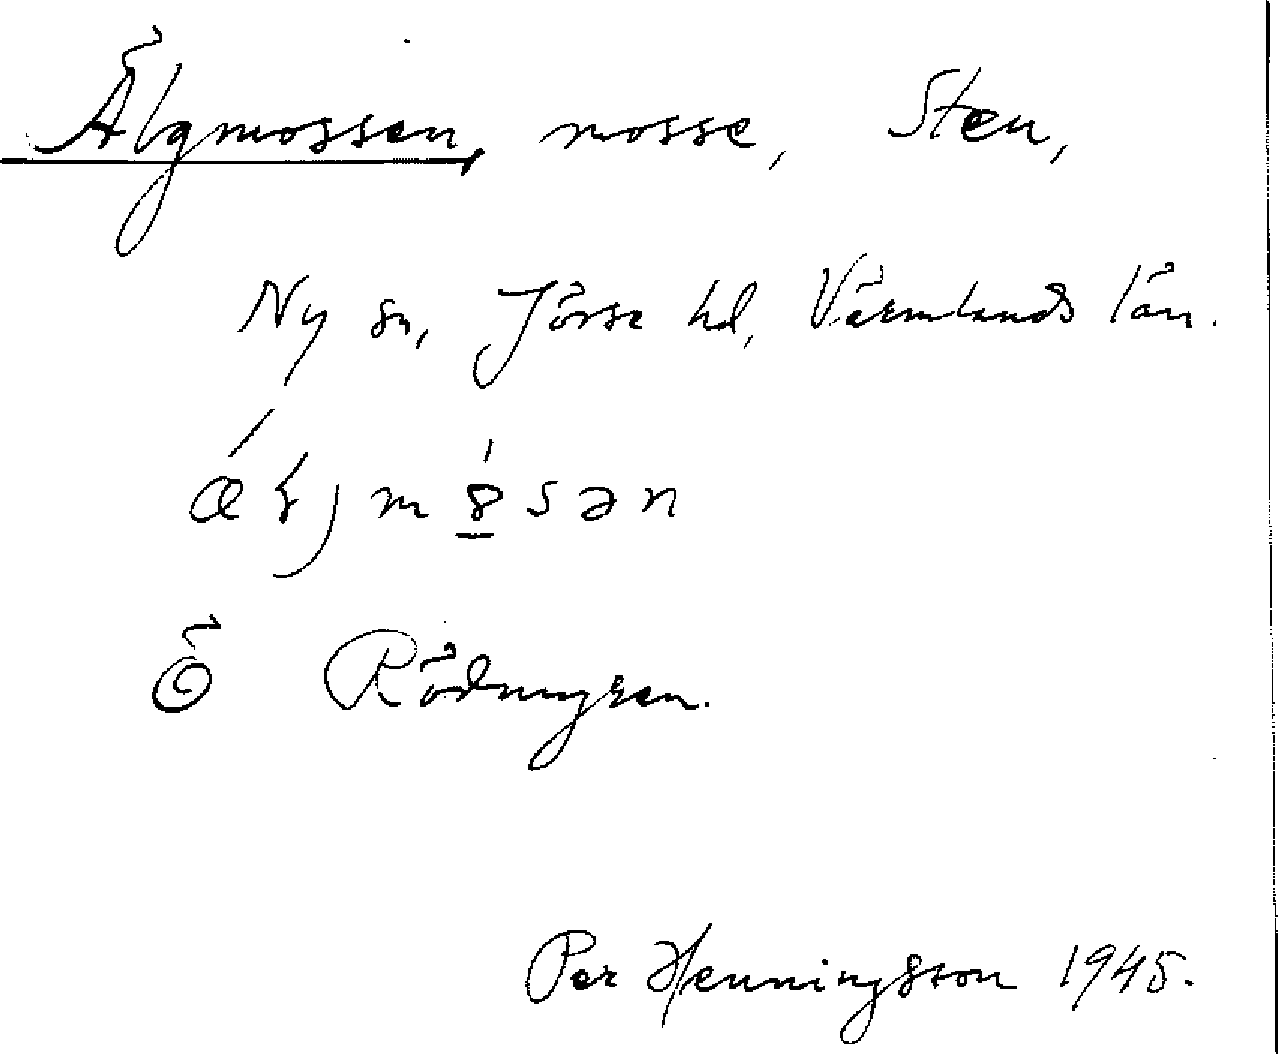 Älgmossen, mosse, Sten,
Ny sn, Jösse hd, Värmlands län.
Ö Rödmyren.
Per Henningsson 1945.